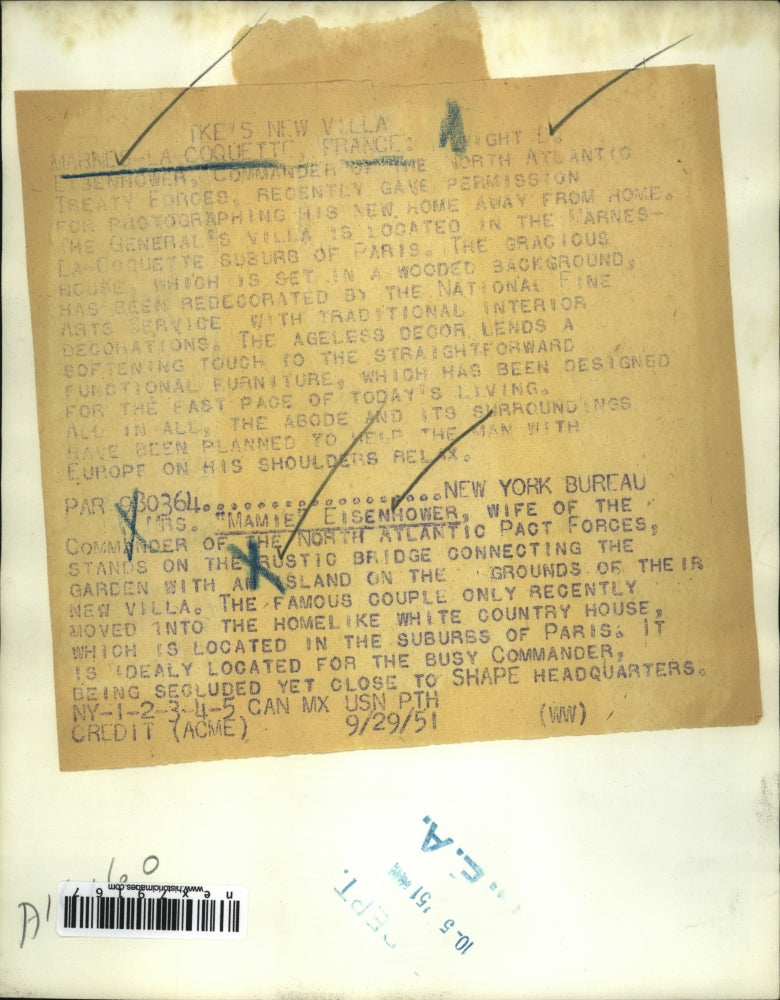 IKE'S NEW VILLA
MARNES-LA COQUETTE, FRANCE: DWIGHT D.
EISENHOWER, COMMANDER OF THE NORTH ATLANTIC
TREATY FORCES, RECENTLY GAVE PERMISSION
FOR PHOTOGRAPHING HIS NEW HOME AWAY FROM HOME.
THE GENERAL'S VILLA IS LOCATED IN THE MARNES-
LA-COQUETTE SUBURB OF PARIS. THE GRACIOUS
HOUSE, WHICH IS SET IN A WOODED BACKGROUND,
HAS BEEN REDECORATED BY THE NATIONAL FINE
ARTS SERVICE WITH TRADITIONAL INTERIOR
DECORATIONS. THE AGELESS DECOR LENDS A
SOFTENING TOUCH TO THE STRAIGHTFORWARD
FUNCTIONAL FURNITURE, WHICH HAS BEEN DESIGNED
FOR THE FAST PACE OF TODAY'S LIVING.
ALL IN ALL, THE ABODE AND ITS SURROUNDINGS
HAVE BEEN PLANNED TO HELP THE MAN WITH
EUROPE ON HIS SHOULDERS RELAX.
PAR 980364....................NEW YORK BUREAU
MRS. "MAMIE" EISENHOWER, WIFE OF THE
COMMANDER OF THE NORTH ATLANTIC PACT FORCES,
STANDS ON THE RUSTIC BRIDGE CONNECTING THE
GARDEN WITH AN ISLAND ON THE GROUNDS OF THEIR
NEW VILLA. THE FAMOUS COUPLE ONLY RECENTLY
MOVED INTO THE HOMELIKE WHITE COUNTRY HOUSE,
WHICH IS LOCATED IN THE SUBURBS OF PARIS. IT
IS IDEALY LOCATED FOR THE BUSY COMMANDER,
BEING SECLUDED YET CLOSE TO SHAPE HEADQUARTERS.
NY-1-2-3-4-5 CAN MX USN PTH
CREDIT (ACME) 9/29/51 (WW)
E.A.
DEPT.
10-5 '51
www.historicimages.com
nex79167